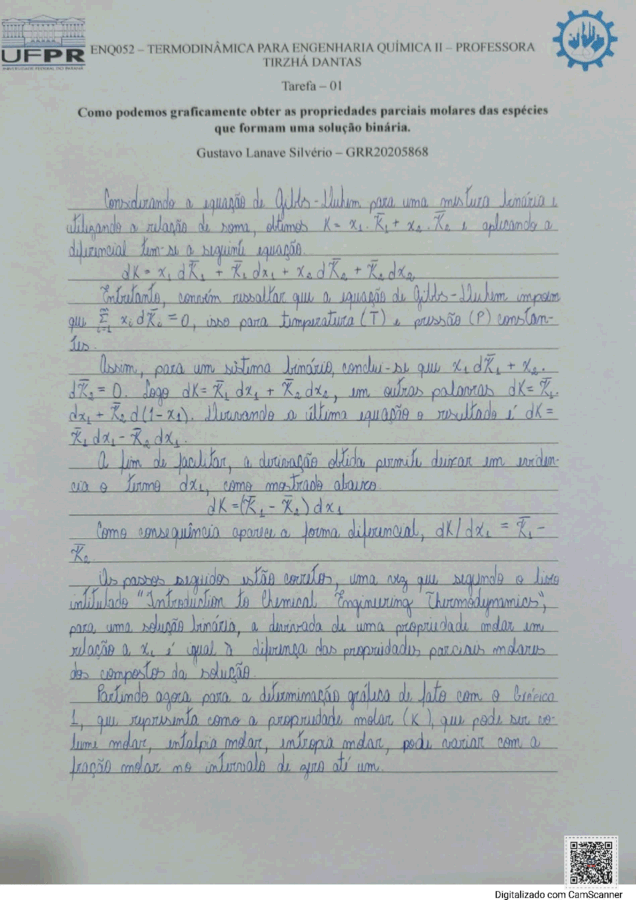 UFPR
UNIVERSIDADE FEDERAL DO PARANÁ
ENQ052 – TERMODINÂMICA PARA ENGENHARIA QUÍMICA II – PROFESSORA
TIRZHÁ DANTAS
Tarefa – 01
Como podemos graficamente obter as propriedades parciais molares das espécies
que formam uma solução binária.
Gustavo Lanave Silvério – GRR20205868
Considerando a equação de Gibbs-Duhem para uma mistura binária e
utilizando a relação de soma, obtimos K = x₁ . K̄₁ + x₂ . K̄₂ e aplicando a
diferencial tem-se a seguinte equação.
dK = x₁ dK̄₁ + K̄₁ dx₁ + x₂ dK̄₂ + K̄₂ dx₂
Entretanto, convém ressaltar que a equação de Gibbs-Duhem impõem
que Σ xᵢ dK̄ᵢ = 0, isso para temperatura (T) e pressão (P) constan-
tes.
Assim, para um sistema binário, conclui-se que x₁ dK̄₁ + x₂.
dK̄₂ = 0. Logo dK = K̄₁ dx₁ + K̄₂ dx₂, em outras palavras dK = K̄₁.
dx₁ + K̄₂ d(1-x₁). Derivando a última equação o resultado é dK =
K̄₁ dx₁ - K̄₂ dx₁.
A fim de facilitar, a derivação obtida permite deixar em evidên-
cia o termo dx₁, como mostrado abaixo
dK = (K̄₁ - K̄₂) dx₁
Como consequência aparece a forma diferencial, dK/dx₁ = K̄₁ -
K̄₂
Os passos seguidos estão corretos, uma vez que segundo o livro
intitulado "Introduction to Chemical Engineering Thermodynamics",
para uma solução binária, a derivada de uma propriedade molar em
relação a x₁ é igual à diferença das propriedades parciais molares
dos compostos da solução.
Partindo agora para a determinação gráfica de fato com o Gráfico
1, que representa como a propriedade molar (K), que pode ser vo-
lume molar, entalpia molar, entropia molar, pode variar com a
fração molar no intervalo de zero até um.
Digitalizado com CamScanner